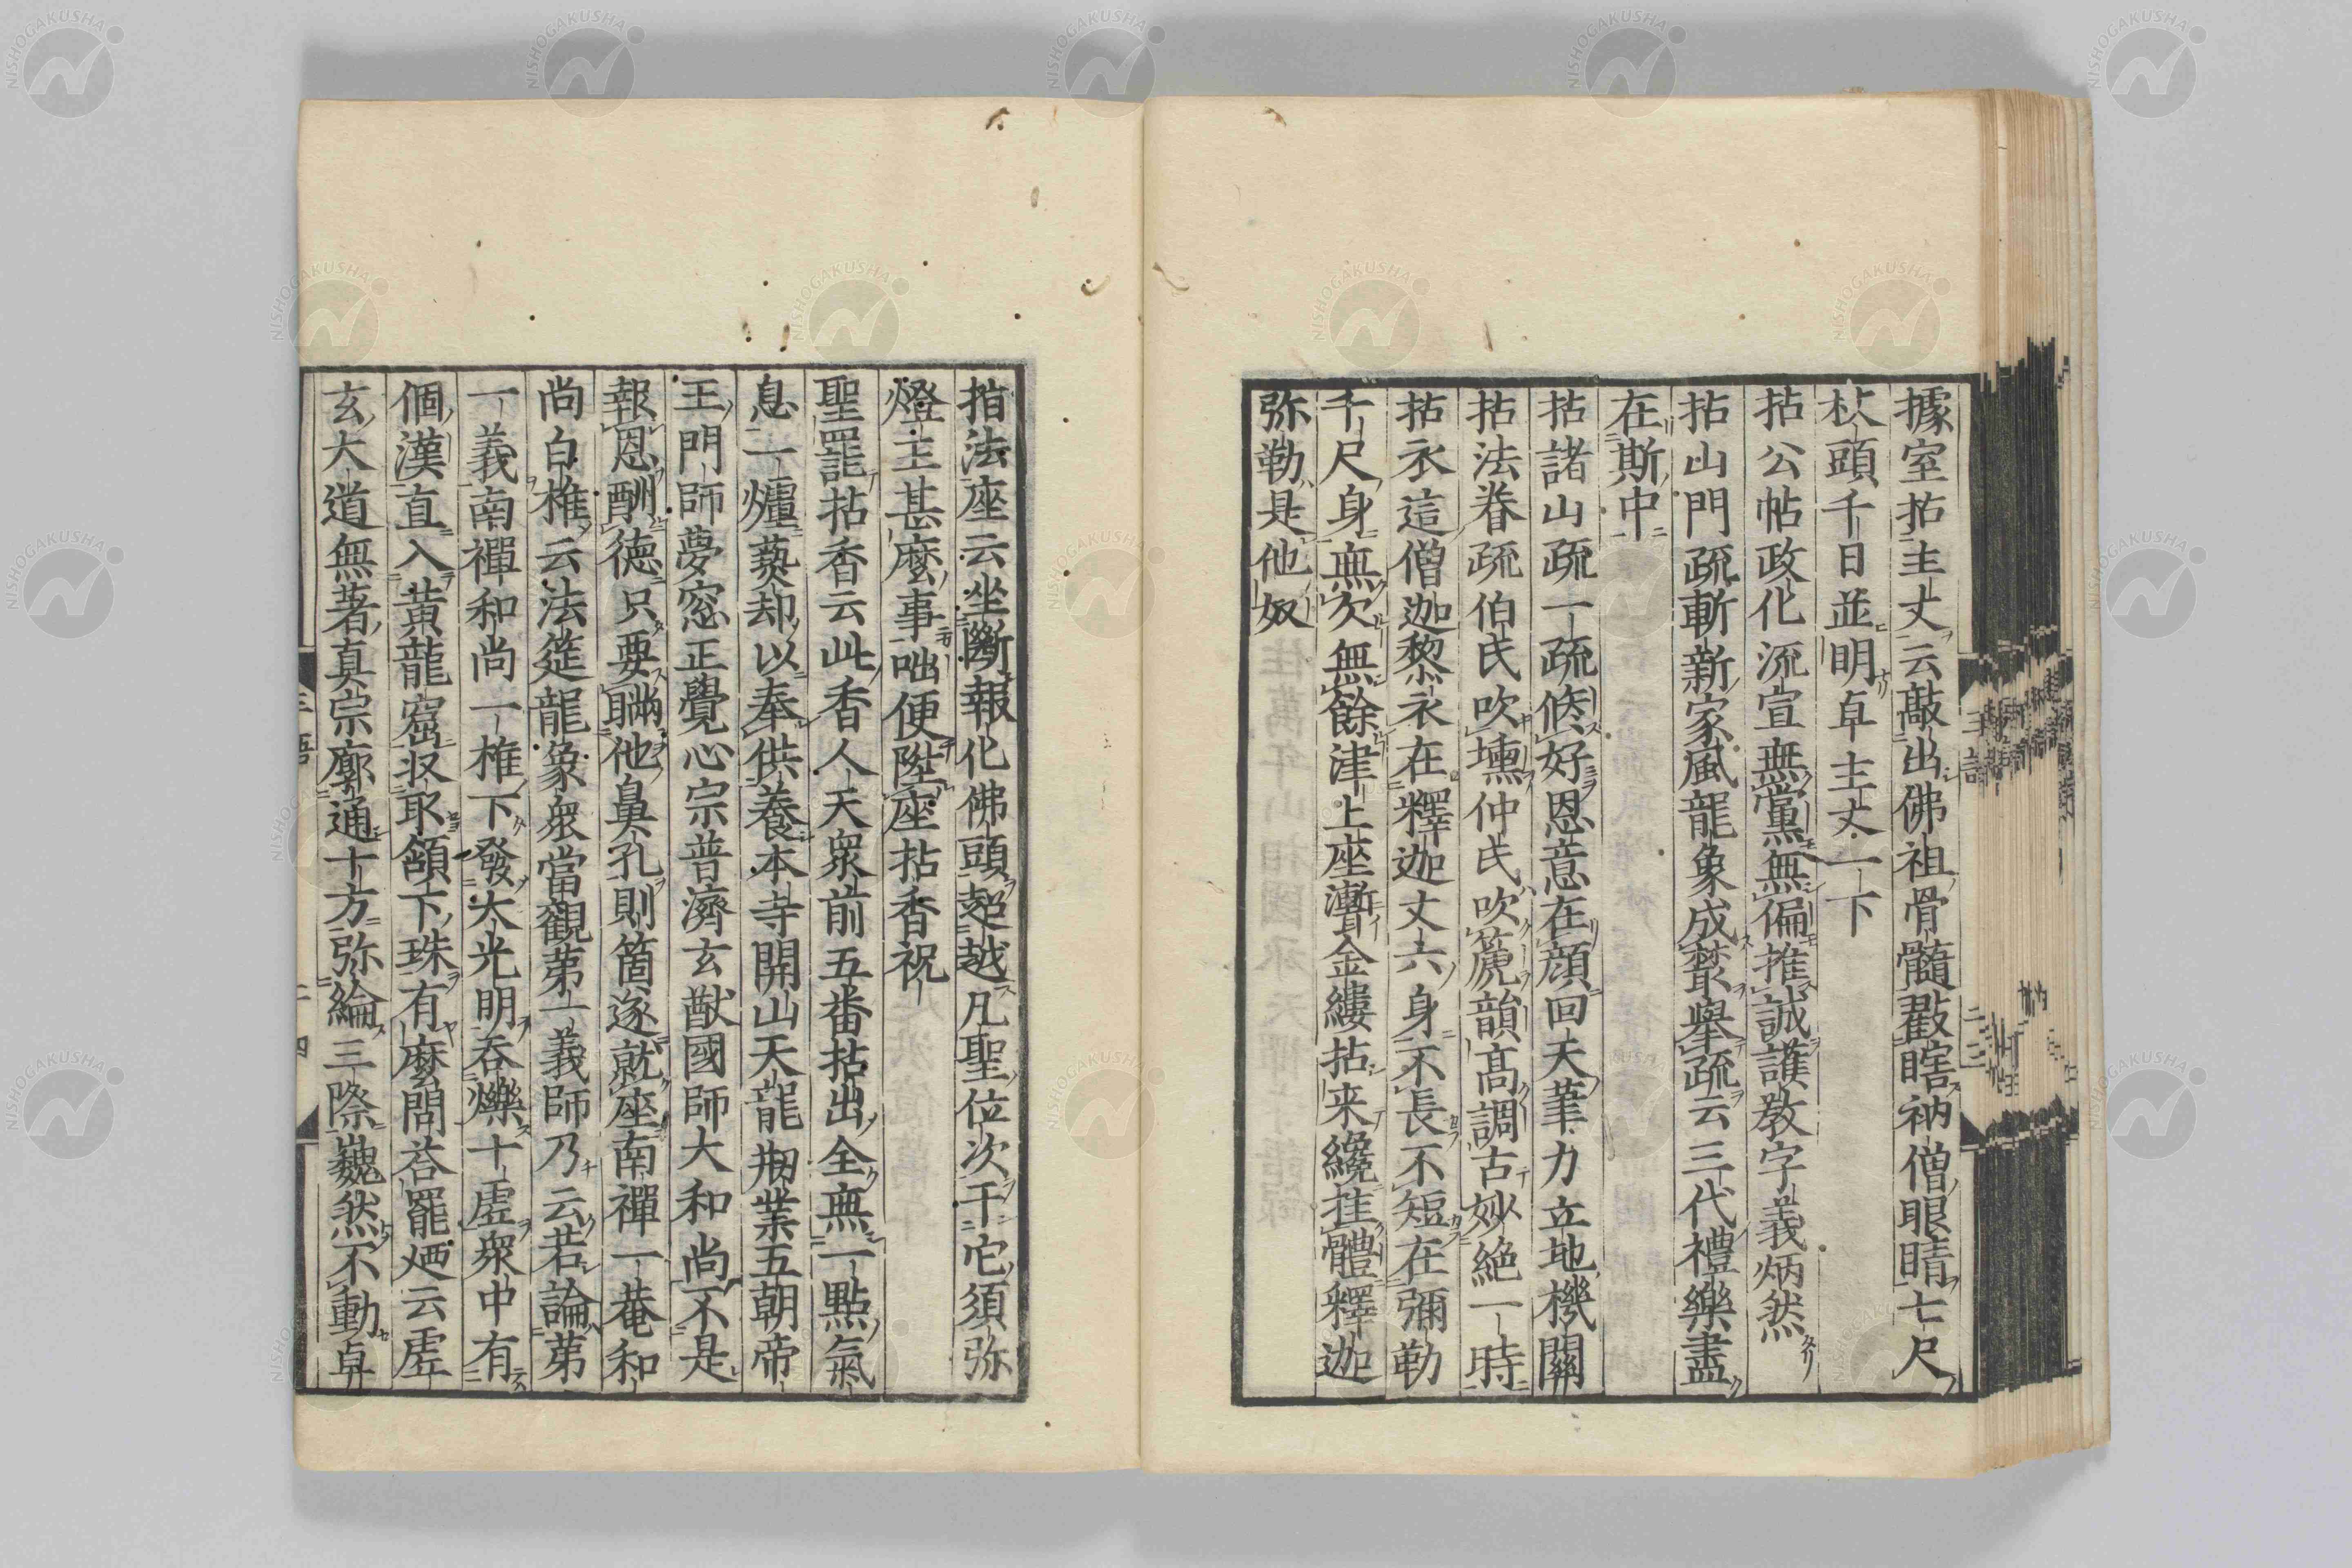 據室拈主丈云敲出佛祖骨髓㸃瞎衲僧眼睛七尺
杖頭千日並明卓主丈一下
拈公帖政化流宣無黨無偏推誠護教字義炳然
拈山門疏斬新家風龍象成叢舉疏云三代禮樂盡
在斯中
拈諸山疏一疏修好恩意在顔回天筆力立地機關
拈法眷疏伯氏吹壎仲氏吹篪韻髙調古妙絶一時
拈衣這僧迦黎衣在釋迦丈六身不長不短在彌勒
千尺身無欠無餘津上座漸金縷拈来纔挂體釋迦
弥勒是他奴
指法座云坐斷報化佛頭超越凡聖位次干它須弥
燈王甚麼事咄便陞座拈香祝
聖罷拈香云此香人天衆前五番拈出全無一點氣
息一爐爇却以奉供養本寺開山天龍剏業五朝帝
王門師夢窓正覺心宗普濟玄猷國師大和尚不是
報恩酬徳只要瞞他鼻孔則箇逐就座南禪一菴和
尚白椎云法筵龍象衆當觀第一義師乃云若論第
一義南禪和尚一椎下發大光明呑爍十虚衆中有
個漢直入黃龍窟収取頷下珠有麼問荅罷廼云虚
玄大道無著真宗廓通十方弥綸三際巍然不動卓